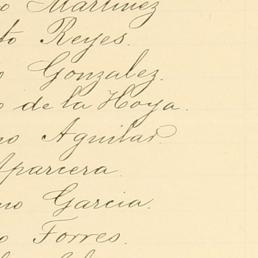 o Martinez
to Reyes.
o Gonzalez.
o de la Hoya.
no Aguilar.
Aparcera.
no Garcia.
o Torres.